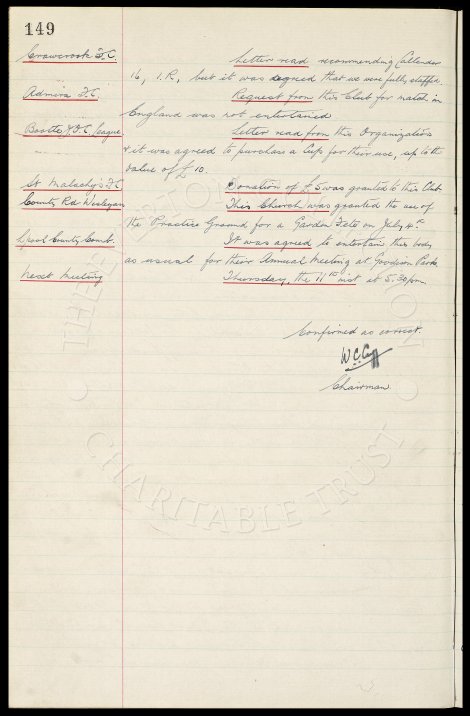 149
Crawcrook F.C. Letter read recommending Callender
16, I.R, but it was agreed that we were fully staffed.
Admira F.C. Request from this Club for match in
England was not entertained
Bootle J.F.C. League Letter read from this Organization
& it was agreed to purchase a Cup for their use, up to the
value of £10.
St Malachy's F.C. Donation of £5 was granted to this Club
County Rd Wesleyans This Church was granted the use of
the Practice Ground for a Garden Fete on July 4th
Lpool County Comb. It was agreed to entertain this body
as usual for their Annual Meeting at Goodison Park
Next Meeting Thursday, the 11th inst at 5.30pm.
Confirmed as correct.
W.C. Cuff
Chairman.
THE EVERTON COLLECTION
CHARITABLE TRUST